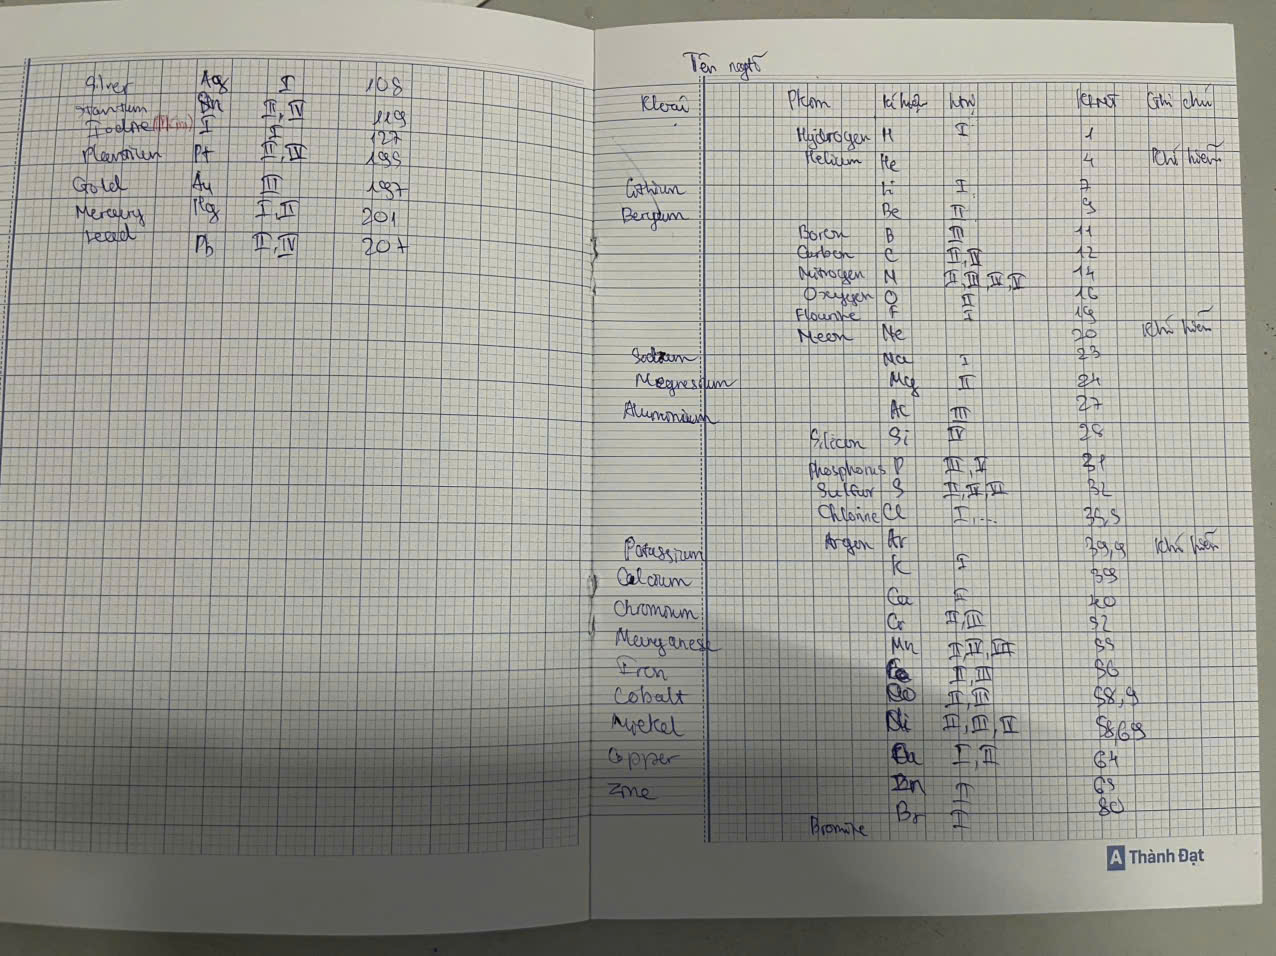 Silver Ag I 108
Stantum Sn II, IV 119
Iodine (Pkim) I I 127
Plantium Pt II, IV 195
Gold Au III 197
Mercury Hg I, II 201
Lead Pb II, IV 207
Tên ngtố
Kloại Pkim kí hiệu htrị KLNT Ghi chú
Hydrogen H I 1
Helium He 4 Khí hiếm
Lithium Li I 7
Beryum Be II 9
Boron B III 11
Carbon C II, IV 12
Nitrogen N II, III, IV, V 14
Oxygen O II 16
Flourine F I 19
Neon Ne 20 Khí hiếm
Sodium Na I 23
Magnesium Mg II 24
Alumonium Al III 27
Silicon Si IV 28
Phosphorus P III, V 31
Sulfur S II, IV, VI 32
Chlorine Cl I, ... 35,5
Argon Ar 39,9 Khí hiếm
Potassium K I 39
Calcium Ca I 40
Chromium Cr II, III 52
Manganese Mn II, IV, VII 55
Iron II, III 56
Cobalt Co II, III 58,9
Nickel Ni II, III, IV 58,69
Copper Cu I, II 64
Zinc Zn II 65
Bromine Br I 80
A Thành Đạt